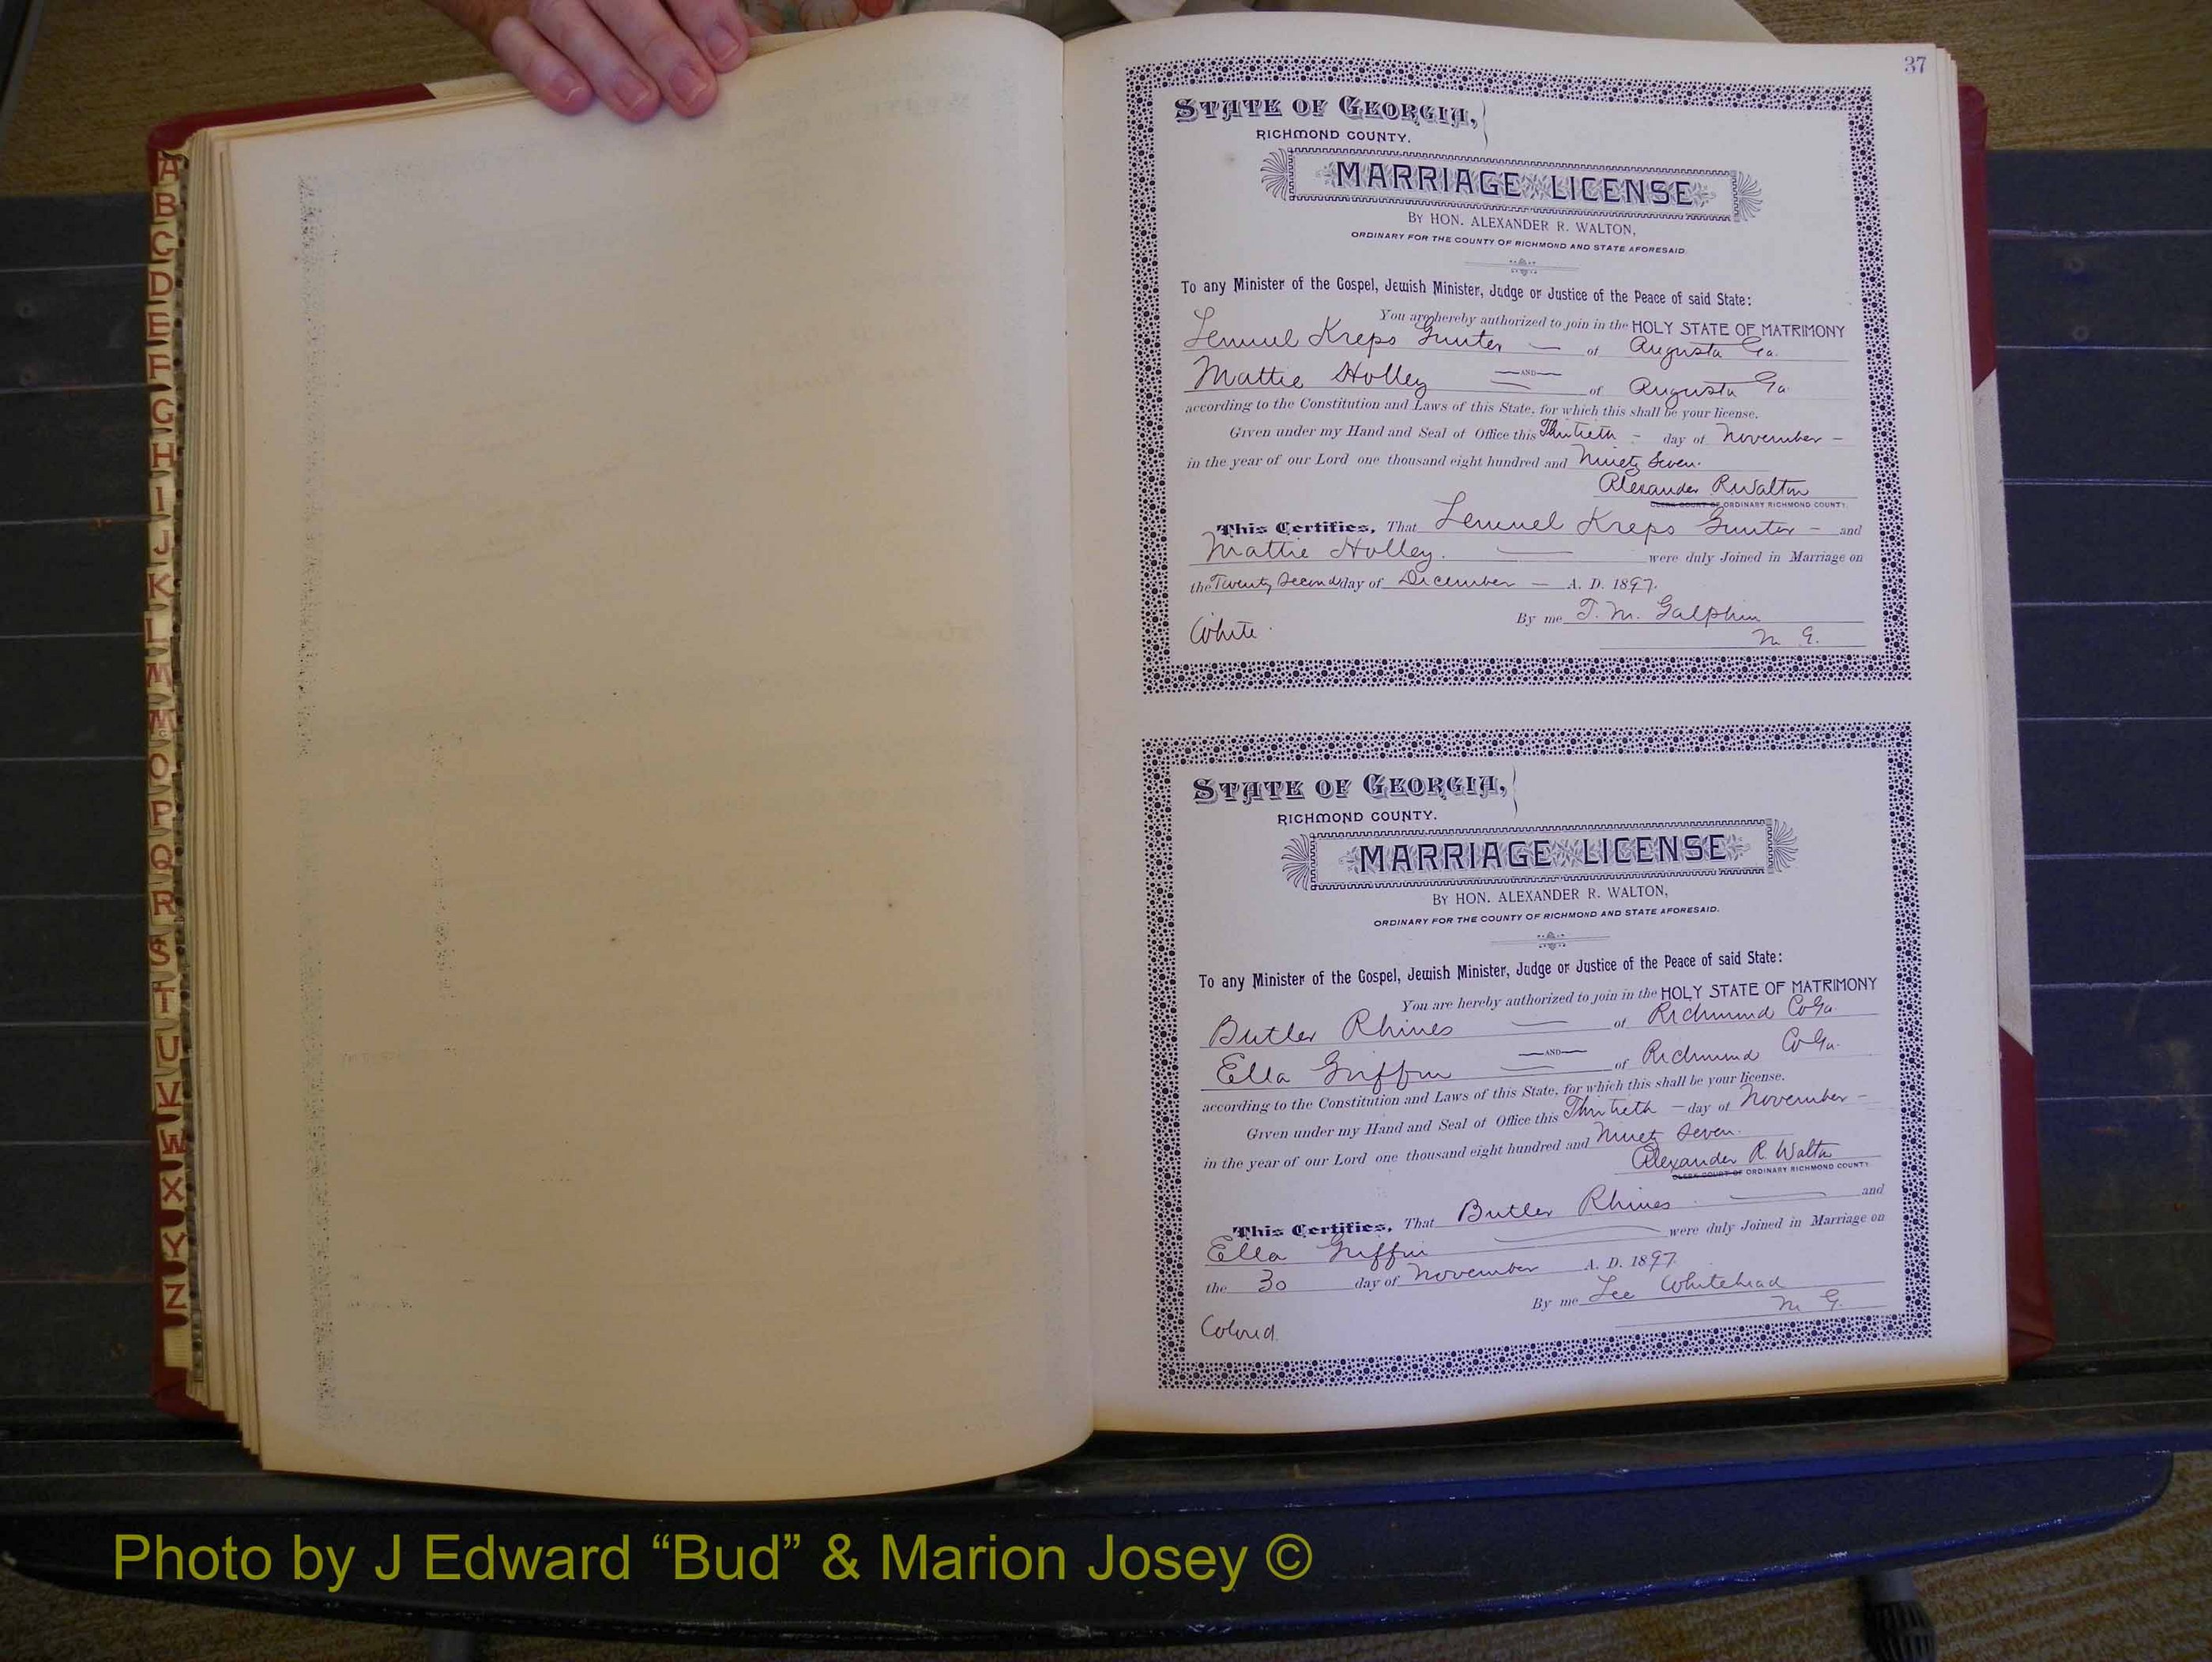 A
B
C
D
E
F
G
H
I
J
K
L
M
Mc
O
P
Q
R
S
T
U
V
W
X
Y
Z
37
STATE OF GEORGIA,
RICHMOND COUNTY.
MARRIAGE LICENSE
BY HON. ALEXANDER R. WALTON,
ORDINARY FOR THE COUNTY OF RICHMOND AND STATE AFORESAID.
To any Minister of the Gospel, Jewish Minister, Judge or Justice of the Peace of said State:
You are hereby authorized to join in the HOLY STATE OF MATRIMONY
Lemuel Kreps Gunter — of Augusta Ga.
—AND—
Mattie Holley of Augusta Ga
according to the Constitution and Laws of this State, for which this shall be your license.
Given under my Hand and Seal of Office this Thirtieth - day of November -
in the year of our Lord one thousand eight hundred and Ninety Seven.
Alexander R Walton
CLERK COURT OF ORDINARY RICHMOND COUNTY.
This Certifies, That Lemuel Kreps Gunter - and
Mattie Holley. were duly Joined in Marriage on
the Twenty Second day of December — A. D. 1897.
By me T. M. Galphin
White. M G.
STATE OF GEORGIA,
RICHMOND COUNTY.
MARRIAGE LICENSE
BY HON. ALEXANDER R. WALTON,
ORDINARY FOR THE COUNTY OF RICHMOND AND STATE AFORESAID.
To any Minister of the Gospel, Jewish Minister, Judge or Justice of the Peace of said State:
You are hereby authorized to join in the HOLY STATE OF MATRIMONY
Butler Rhines — of Richmond Co Ga.
—AND—
Ella Griffin of Richmond Co Ga.
according to the Constitution and Laws of this State, for which this shall be your license.
Given under my Hand and Seal of Office this Thirtieth - day of November -
in the year of our Lord one thousand eight hundred and Ninety Seven.
Alexander R. Walton
CLERK COURT OF ORDINARY RICHMOND COUNTY.
This Certifies, That Butler Rhines and
Ella Griffin were duly Joined in Marriage on
the 30 day of November A. D. 1897.
By me Lee Whitehead
M G.
Colored.
Photo by J Edward “Bud” & Marion Josey ©